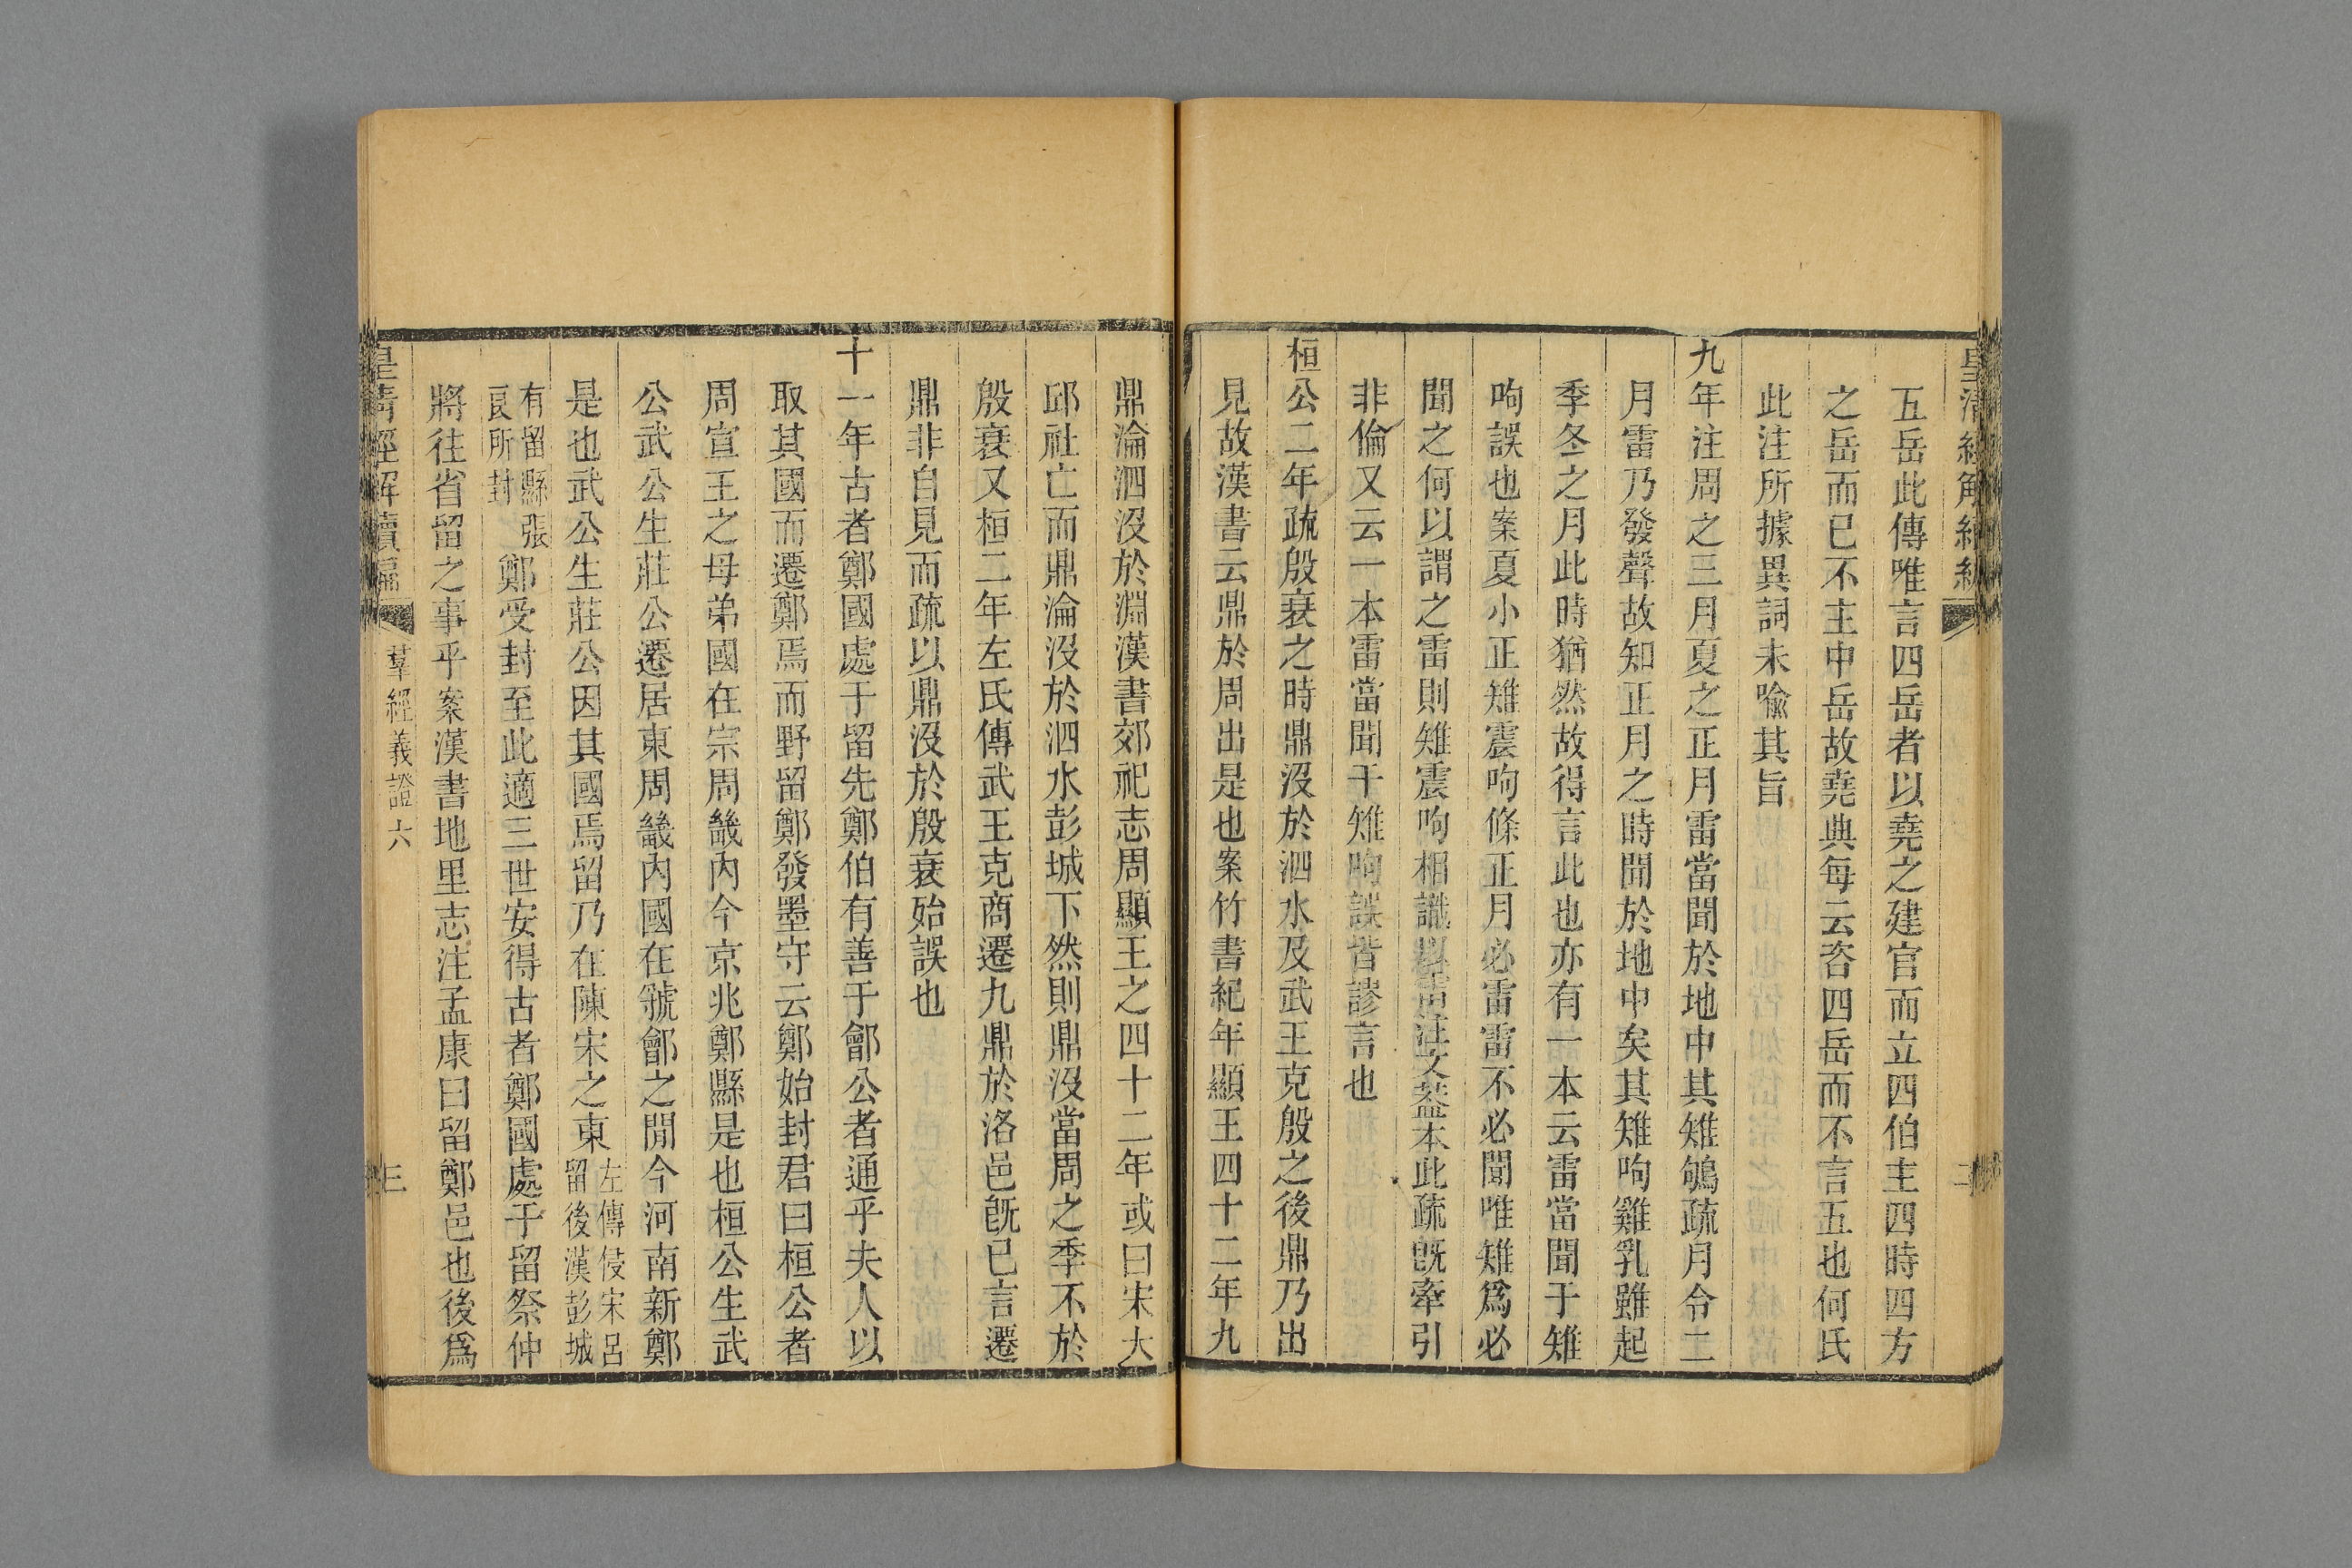 五岳此傳唯言四岳者以堯之建官而立四伯主四時四方
之岳而已不主中岳故堯典每云咨四岳而不言五也何氏
此注所據異詞未喻其旨
九年注周之三月夏之正月雷當聞於地中其雉雊疏月令二
月雷乃發聲故知正月之時聞於地中矣其雉呴雞乳雖起
季冬之月此時猶然故得言此也亦有一本云雷當聞于雉
呴誤也案夏小正雉震呴條正月必雷雷不必聞唯雉爲必
聞之何以謂之雷則雉震呴相識以雷注文葢本此疏旣牽引
非倫又云一本雷當聞于雉呴誤皆謬言也
桓公二年疏殷衰之時鼎沒於泗水及武王克殷之後鼎乃出
見故漢書云鼎於周出是也案竹書紀年顯王四十二年九
鼎淪泗沒於淵漢書郊祀志周顯王之四十二年或曰宋大
邱社亡而鼎淪沒於泗水彭城下然則鼎沒當周之季不於
殷衰又桓二年左氏傳武王克商遷九鼎於洛邑旣已言遷
鼎非自見而疏以鼎沒於殷衰殆誤也
十一年古者鄭國處于留先鄭伯有善于鄶公者通乎夫人以
取其國而遷鄭焉而野留鄭發墨守云鄭始封君曰桓公者
周宣王之母弟國在宗周畿內今京兆鄭縣是也桓公生武
公武公生莊公遷居東周畿內國在虢鄶之閒今河南新鄭
是也武公生莊公因其國焉留乃在陳宋之東左傳侵宋呂留後漢彭城
有留縣張良所封鄭受封至此適三世安得古者鄭國處于留祭仲
將往省留之事乎案漢書地里志注孟康曰留鄭邑也後爲
皇清經解續編
羣經義證六
三